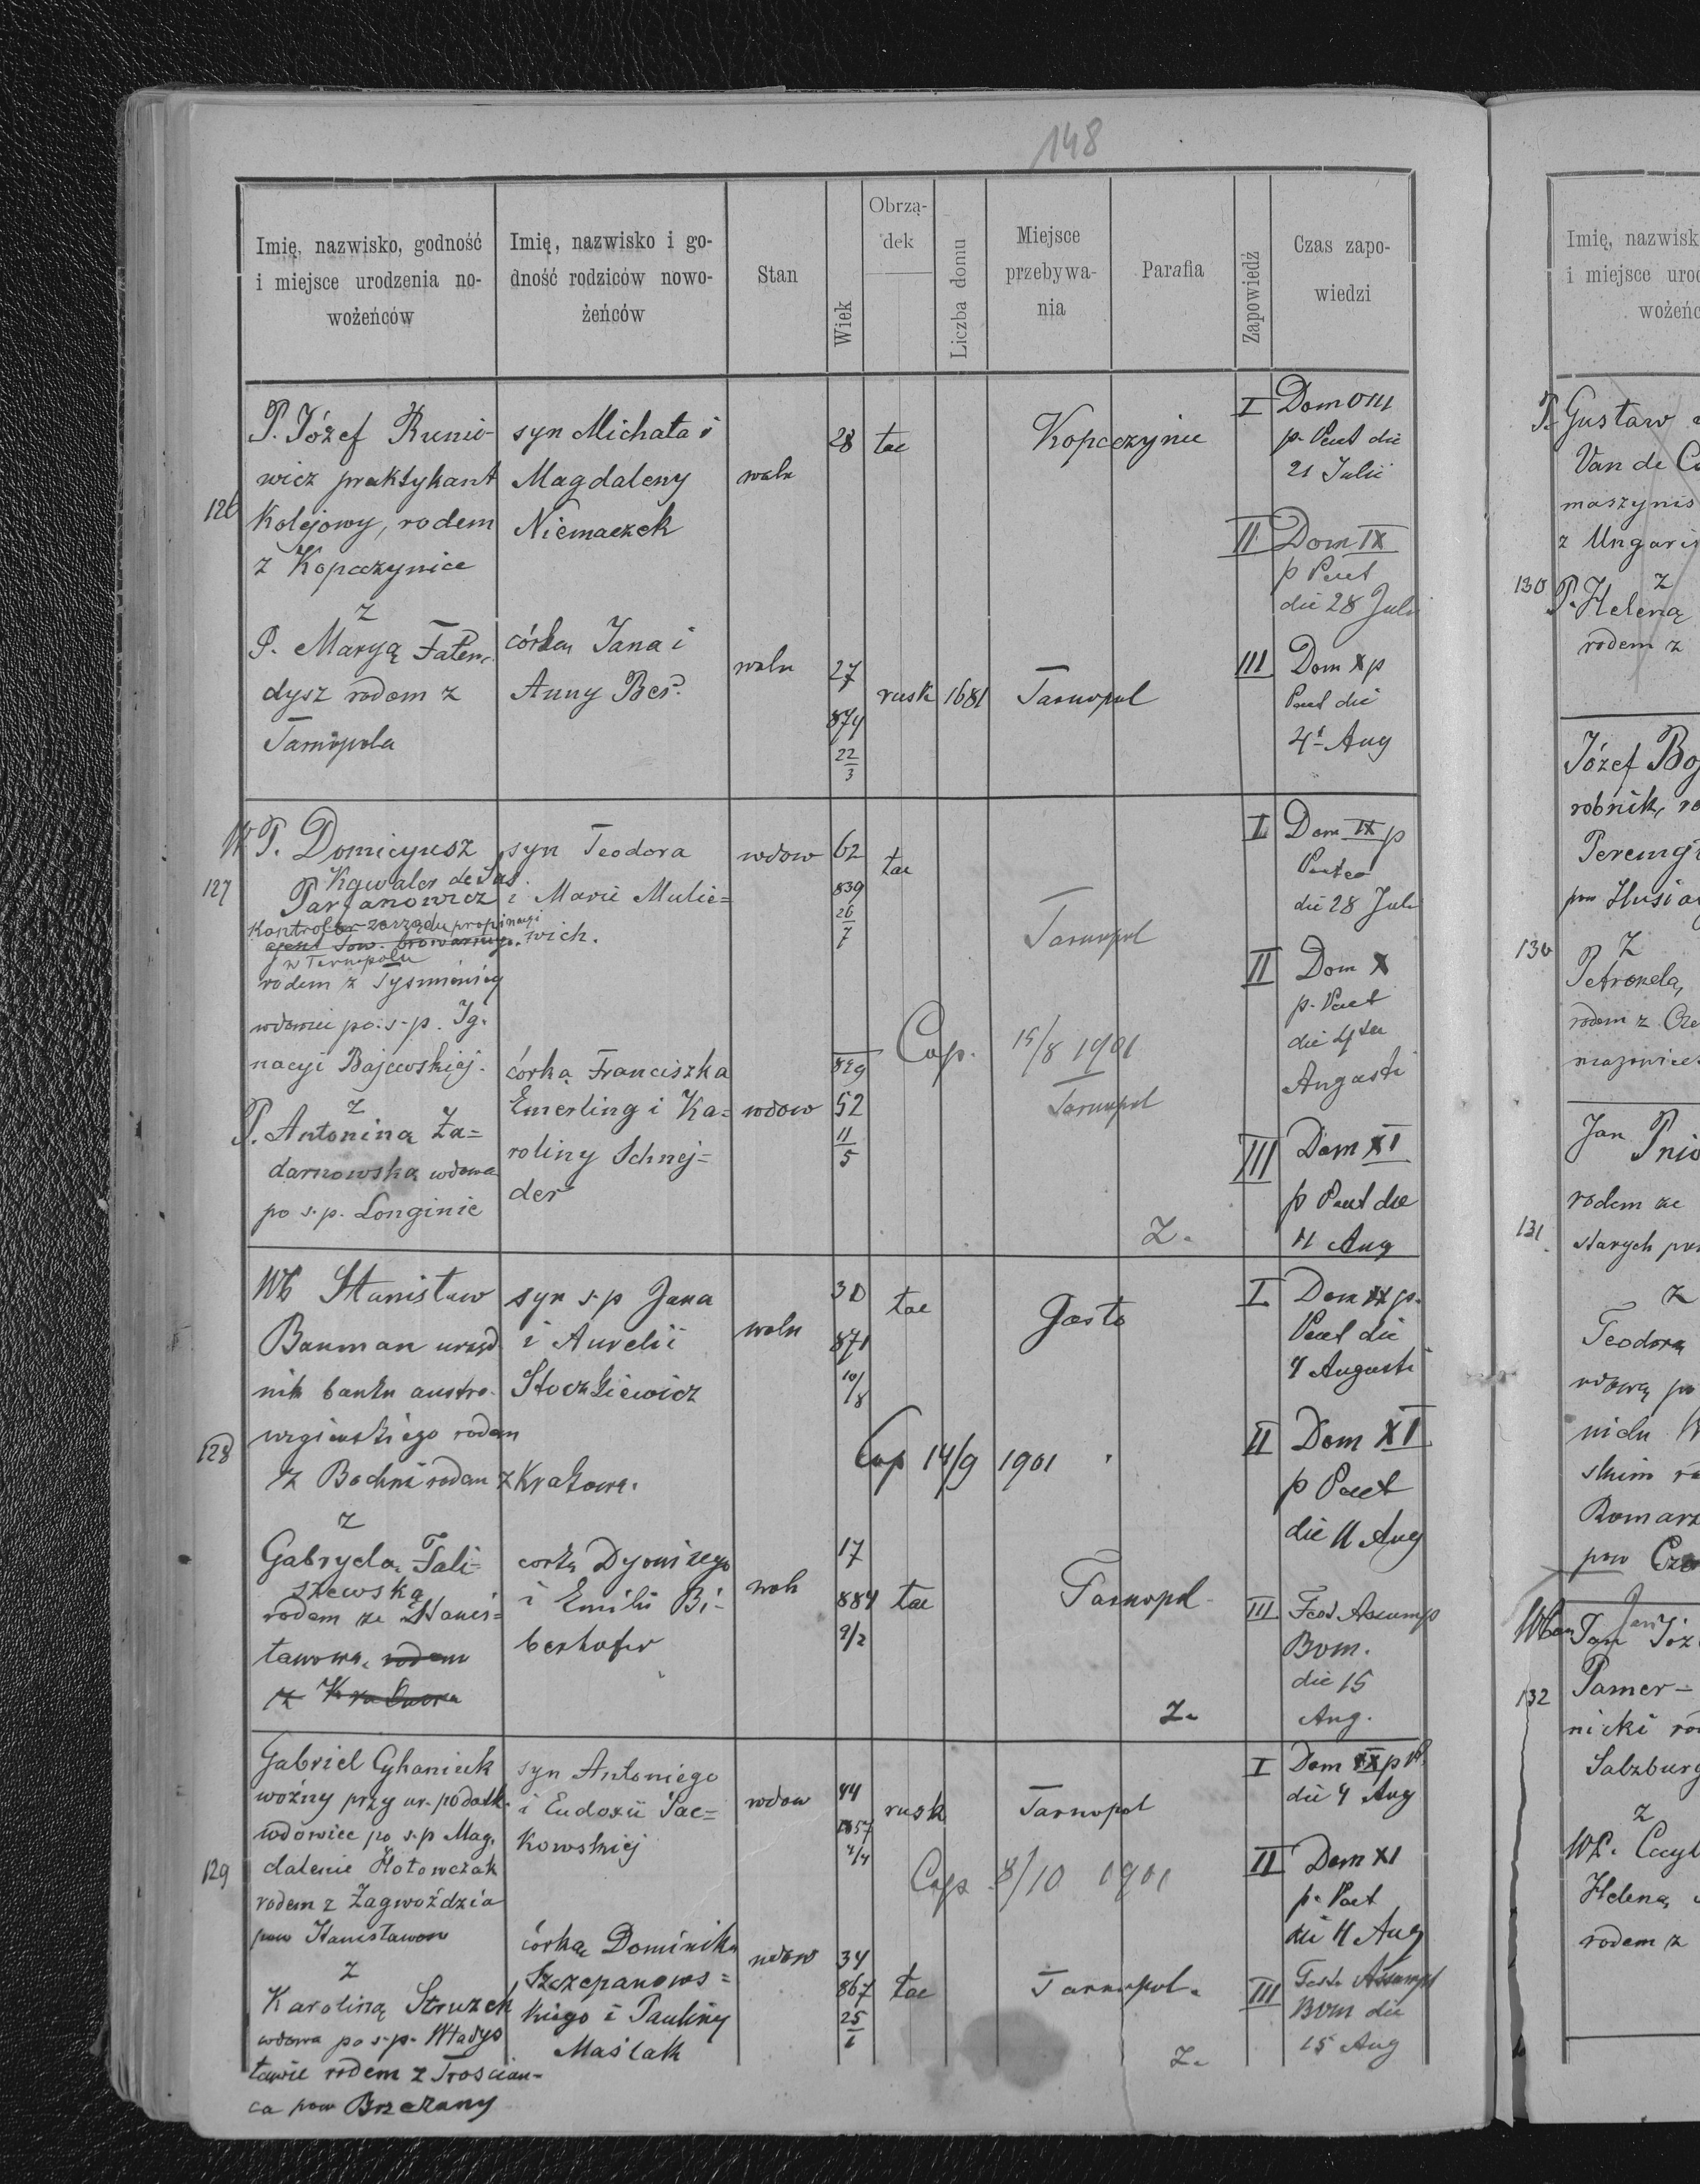 148
Imię, nazwisko, godność
i miejsce urodzenia no-
wożeńców
Imię, nazwisko i go-
dność rodziców nowo-
żeńców
Stan
Wiek
Obrzą-
dek
Liczba domu
Miejsce
przebywa-
nia
Parafia
Zapowiedź
Czas zapo-
wiedzi
126
P. Józef Runio-
wicz praktykant
Kolejowy, rodem
z Kopeczynice
z
P. Maryą
dysz rodem z
Tarnopola
syn Michała i
Magdaleny
Niemaczek
córka Jana i
Anny Beş
woln
28
łac
Kopeczynie
woln
27
874
22
3
rusk
1681
Tarnopol
I
p. Pent die
21 Julii
II
Dom IX
p Pent
die 28 Juli
III
Dom X p
Pent die
4 Aug
127
W P. Domicyusz
Kawaler de Sas
Parjanowicz
Kontroler zarządu propinacyi
ajent Tow. browarnego
w Tarnopolu
rodem z Tyśmienicy
wdowiec po s.p. Ig-
nacyi Bajewskiej.
z
P. Antoniną Ża-
darnowską wdowa
po s.p. Longinie
syn Teodora
i Marii Mulie=
wich.
córka Franciszka
Emerling i Ka=
roliny Schnej=
der
wdow
62
839
26
7
łac
Tarnopol
Cop. 15/8 1901
wdow
849
52
11
5
Tarnopol
Z.
I
Dom IX p
die 28 Juli
II
Dom X
p. Pent
die 4ta
Augusti
III
Dom XI
p Pent die
11 Aug
128
Wb Stanisław
Bauman urzęd
nik banku austro-
węgierskiego rodem
z Bochni rodem z Krakowa.
z
Gabryela Tali-
szewską
rodem ze Stanis=
ławowa, rodem
z Krakowa
syn s.p Jana
i Aurelii
Stoczkiewicz
corką Dyonizego
i Emilii Bi-
berhofer
woln
30
871
10/8
łac
Jasło
Cop 14/9 1901
woln
17
884
9/2
łac
Tarnopol
Z.
I
Dom X p.
Pent die
4 Augusti
II
Dom XI
p Pent
die 11 Aug
III
Fest Assump
BVM.
die 15
Aug.
129
Gabriel Cyhaniuk
woźny przy ur. podatk.
wdowiec po s.p Mag.
dalenie Hotowczak
rodem z Zagwoździa
pow Stanisławow
z
Karoliną Struzek
wdowa po s.p. Włady
ławie rodem z Trościan-
ca pow Brzeżany
syn Antoniego
i Eudoxii Sac=
kowskiej
córką Dominika
Szczepanows=
kiego i Pauliny
Maślak
wdow
44
1857
4/4
rusk
Tarnopol
Cop 8/10 1901
wdow
34
867
25
1
łac
Tarnopol.
Z.
I
Dom X p
die 4 Aug
II
Dom XI
p. Pent
die 11 Aug
III
Festo Assumpt
BVM die
15 Aug
Imię, nazwisk
i miejsce urod
wożeńc
130
P. Gustaw
Van de
maszynis
z
P. Heleną
rodem z
130
Józef
robnik,
z
Petronela,
rodem z
131
Jan
rodem ze
starych
z
Teodora
wdową po
skim
pow
132
Jan
Pamer-
nicki
Salzburg
z
Heleną
rodem z